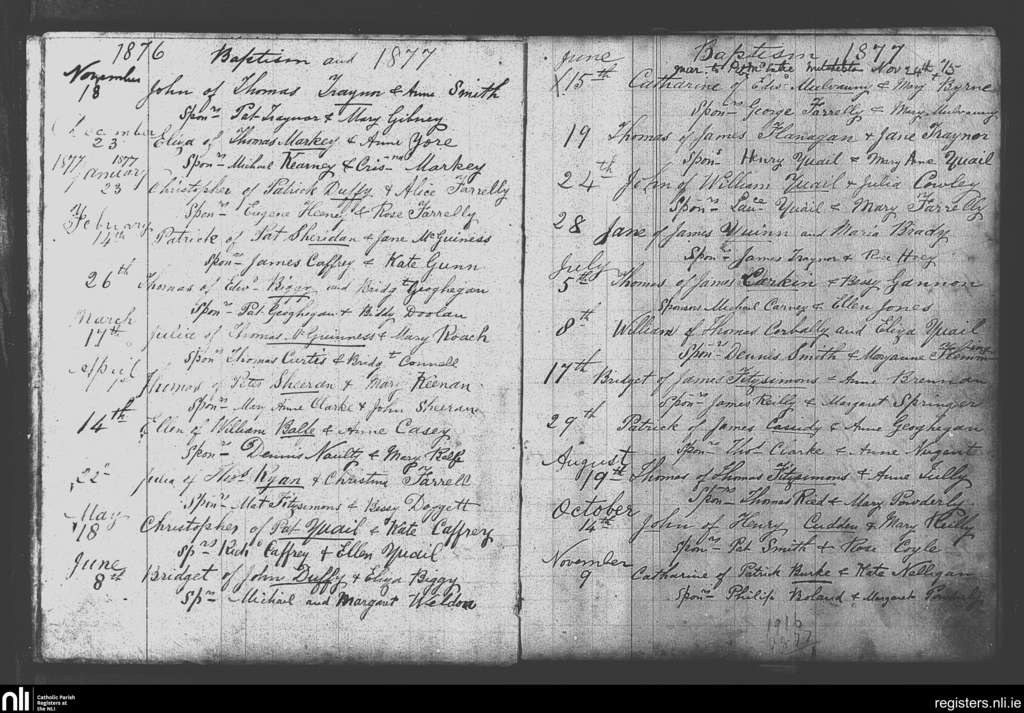 1876 Baptism and 1877
November
18 John of Thomas Traynor & Anne Smith
Sponrs Pat Traynor & Mary Gibney
December
23 Eliza of Thomas Markey & Anne Yore
Sponrs Michael Kearney & Markey
1877 1877
January
23 Christopher of Patrick Duffy & Alice Farrelly
Sponrs Eugene & Rose Farrelly
February
14th Patrick of Pat Sheridan & Jane McGuiness
Sponrs James Caffrey & Kate Gunn
26th Thomas of Edwd Biggy and Bridgt Geoghegan
Sponrs Pat Geoghegan & Biddy Doolan
March
17th Julia of Thomas McGuinness & Mary Roach
Sponrs Thomas Curtis & Bridgt Connell
April
1st Thomas of Peter Sheeran & Mary Keenan
Sponrs Mary Anne Clarke & John Sheeran
14th Ellen of William Balfe & Anne Casey
Sponrs Dennis Naulty & Mary Balfe
22d Julia of Thos Ryan & Christina Farrell
Sponrs Mat Fitzsimons & Bessy Doggett
May
18 Christopher of Pat Quail & Kate Caffrey
Sprs Richd Caffrey & Ellen Quail
June
8th Bridget of John Duffy & Eliza Biggy
Sprs Michael and Margaret Weldon
Baptism 1877
June
mar. to Nov 24th '15
X15th Catharine of Edwd Mulvanny & Mary Byrne
Sponrs George Farrelly & Mary Mulvanny
19 Thomas of James Flanagan & Jane Traynor
Sponrs Henry Quail & Mary Anne Quail
24th John of William Quail & Julia Cowley
Sponrs Lauce Quail & Mary Farrelly
28 Jane of James Quinn and Maria Brady
Sponrs James Traynor & Rose Hoey
July
5th Thomas of James Larkin & Bessy Gannon
Sponsors Michael Carney & Ellen Jones
8th William of Thomas Corbally and Eliza Quail
Sponrs Dennis Smith & Maryanne Fleming
17th Bridget of James Fitzsimons & Anne Brennan
Sponrs James Reilly & Margaret Springer
29th Patrick of James Cassidy & Anne Geoghegan
Sponrs Thos Clarke & Anne Nugent
August
19th Thomas of Thomas Fitzsimons & Anne Lilly
Sponrs Thomas Reed & Mary Powderly
October
14th John of Henry Cudden & Mary Reilly
Sponrs Pat Smith & Rose Coyle
November
9 Catharine of Patrick Burke & Kate Nalligan
Sponrs Philip Boland & Margaret
1916
1877
nli
Catholic Parish
Registers at
the NLI
registers.nli.ie